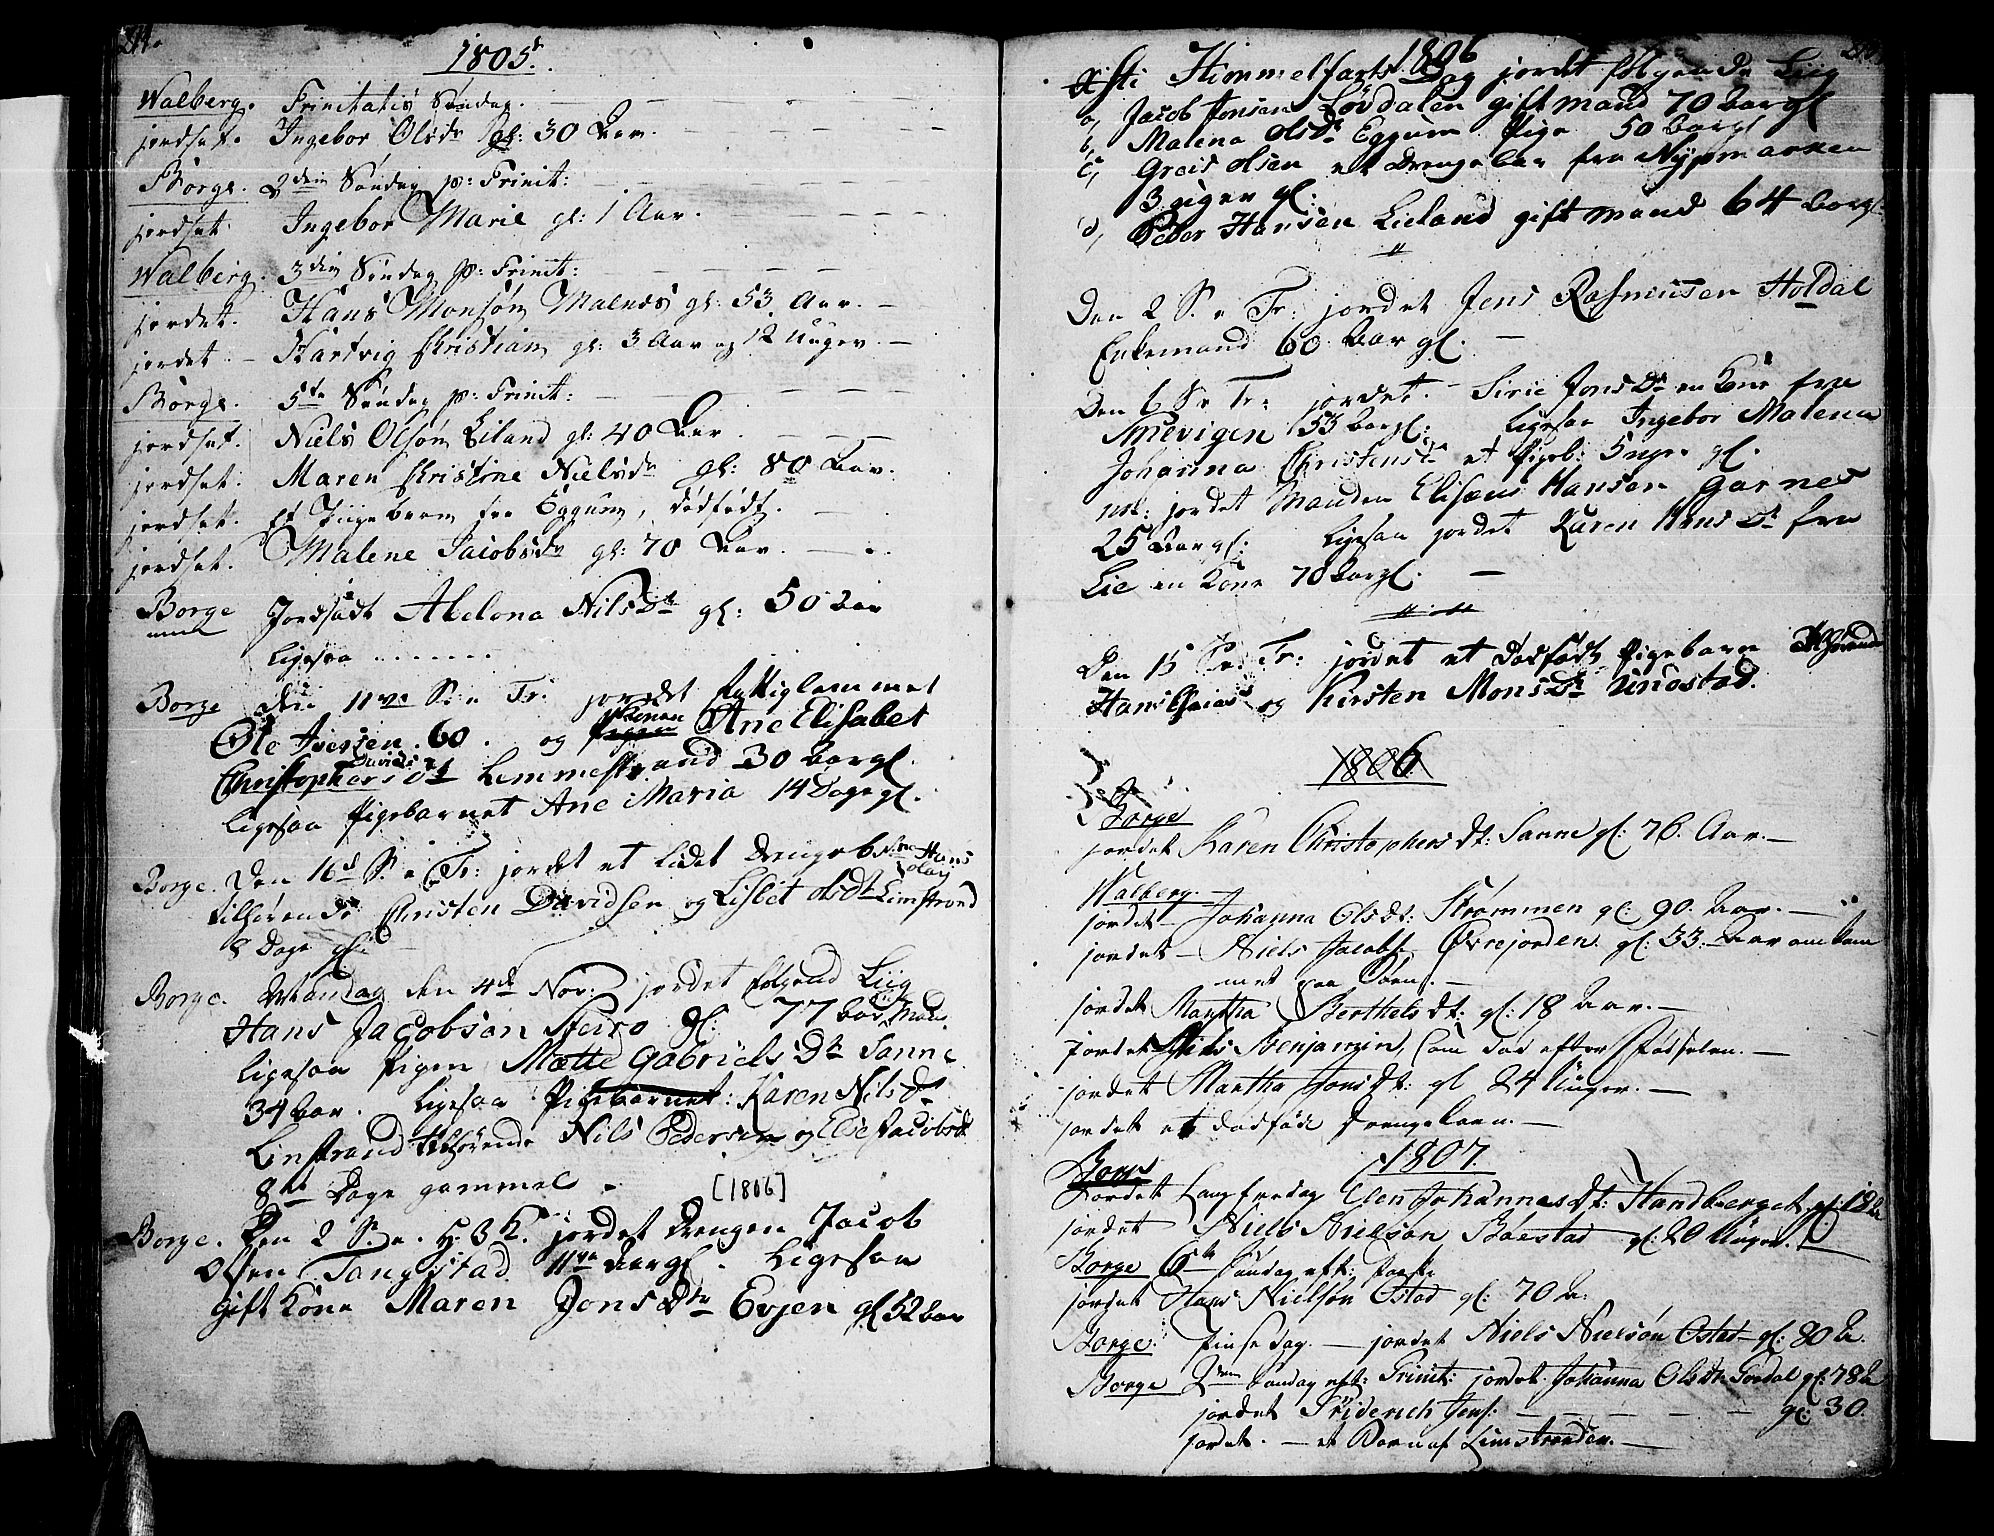 1805.
Walberg. Trinitatis Søndag.
jordsat. Ingebor Olsdr gl: 30 Aar.
Borge. 2den Søndag p: Trinit:
jordsat. Ingebor Marie gl: 1 Aar.
Walberg. 3die Søndag p: Trinit:
jordet. Hans Monsøn Malnes gl: 53 Aar.
jordet Hartvig Kristian gl: 3 Aar og 12 Uuger.
Borge. 5te Søndag p: Trinit:
jordsat. Niels Olsøn Eiland gl: 40 Aar.
jordsat. Maren Kristine Nielsdr gl: 80 Aar.
jordsat. Et Piigebarn fra Eggum, dødfødt.
jordsat. Malene Jacobsdr gl: 70 Aar.
Borge Jordsadt Abelona Nilsdr gl: 50 Aar
ligesaa
Borge den 11te S: e Tr. jordet Fattiglemmet
Ole Iversen 60. og Konen Ane Elisabet
Christophersdt Lemmestrand 30 Aar gl.
ligesaa Pigebarnet Ane Maria 14 Dage gl.
Borge. Den 16d S. e Tr: jordet et lidet Drengeb. Hans
tilhørende Christen Davidsen og Lisbet Olsdt Limstrand
8 Dage gl:
Borge. Mandag den 4de Nov. jordet følgend Liig
Hans Jacobsen Steiro gl: 77 Aar
ligesaa Pigen Mætte Gabrielsdtr Sanne
34 Aar. ligesaa Pigebarnet: Karen Nilsdr
Linstrand tilhørende Nils Pedersen og Else Jacobsdr
8te Dage gammel
[1806]
Borge. Den 2 S. e. H: 3 K. jordet Drengen Jacob
Olsen Tangstad 11ve Aar gl. Ligesaa
Gift Kone Maren Jonsdtr Evjen gl 52 Aar
1806
Xsti Himmelfarts Dag jordet følgende Liig
a, Jacob Jonsen Løvdalen gift mand 70 Aar gl
b, Malena Olsdr Eggum Pige 50 Aar gl
c, Greis Olsen et Drengebar fra Nypmarken
3 uger gl:
d, Peder Hansen Lieland gift mand 64 Aar gl
Den 2 S. e Tr: jordet Jens Rasmusen Holdal
Enkemand 60 Aar gl.
Den 6 S e Tr: jordet Sirie Jonsdr en Kone fra
55 Aar gl: ligesaa Ingebor Malena
Johanna Christensdr et Pigeb: 5 ugr gl.
jordet Manden Elisæus Hansen Garnes
25 Aar gl: Ligesaa jordet Karen Hansdr fra
Lie en Kone 70 Aar gl.
Den 15 S e Tr: jordet et dødfødt Pigebarn tilhørende
Hans og Kirsten Monsdr Undstad.
1806
Borge
jordet Karen Christophersdt: Sanne gl: 76. Aar.
Walberg.
jordet Johanna Olsdt: Strømmen gl: 90. Aar.
jordet Niels Jacobs. Øvrejorden gl: 33. Aar omkom
met paa Søen.
jordet Martha Berthelsdt: gl: 18 Aar.
jordet Nils Benjamin, som død efter Fødselen.
jordet Martha Jonsdt: gl 24 Uuger.
jordet et dødføde Drengebarn.
1807.
Borge
Jordet Langfredag Elen Johannesdt: Handberget gl: 18
jordet Niels Nielson Bøestad gl: 20 Uuger.
Borge 6te Søndag eft: Paaske
jordet Hans Nielsøn Østad gl: 70 A.
Borge. Pinsedag. jordet Niels Nielsøn Østad gl: 80 A.
Borge 2den Søndag eft: Trinit: jordet Johanna Olsdt gl: 78 A
jordet Friderich Jens: gl: 30.
jordet. et Barn af Limstranden.